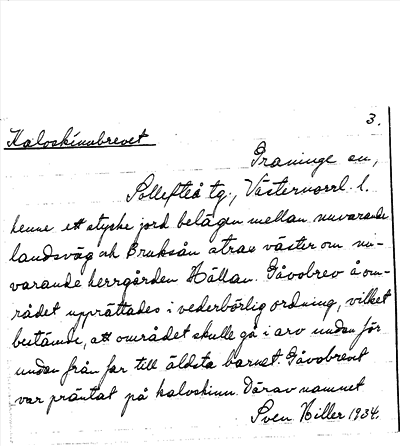 3.
Kalvskinnbrevet
Graninge sn,
Sollefteå tg., Västernorrl. l.
henne ett stycke jord belägen mellan nuvarande
landsväg och Bruksån strax väster om nu-
varande herrgården Hällan. Gåvobrev å om-
rådet upprättades i vederbörlig ordning, vilket
bestämde, att området skulle gå i arv undan för
undan från far till äldsta barnet. Gåvobrevet
var präntat på kalvskinn. Därav namnet
Sven Hiller 1934.